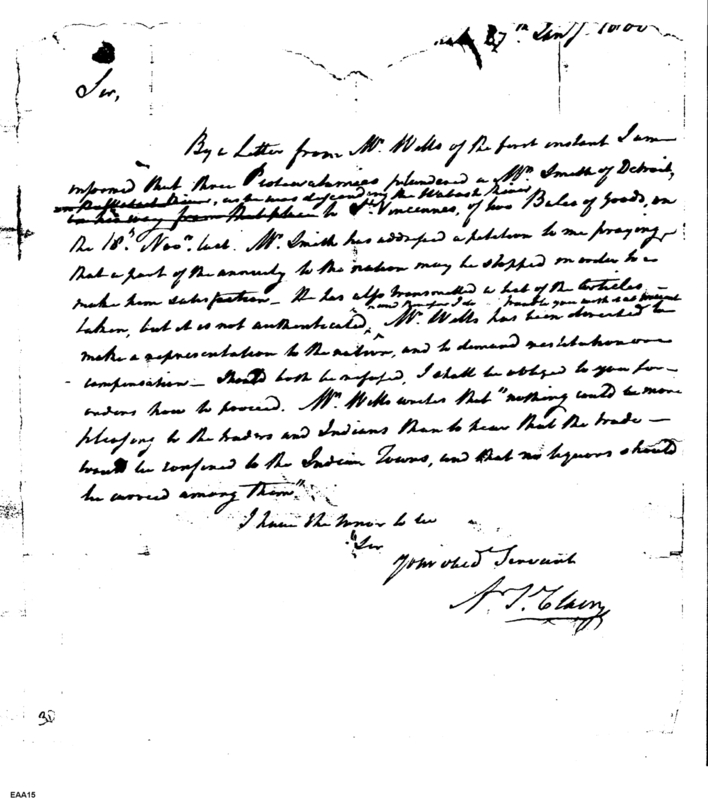 27th Jany. 1800
Sir,
By a Letter from Mr. Wells of the first instant I am
informed that three Potowatamies plundered a Mr. Smith of Detroit,
as he was descending the Wabash River
on his way from that place to St. Vincennes, of two Bales of Goods, on
the 18th. Novr. last. Mr. Smith has addressed a petition to me praying
that a part of the annuity to the nation may be stopped in order to
make him satisfaction – He has also transmitted a list of the articles –
and therefore I do trouble you with it at present
taken, but it is not authenticated, Mr. Wells has been directed to
make a representation to the nation, and to demand restitution or
compensation – Should both be refused, I shall be obliged to you for
orders how to proceed. Mr. Wells writes that "nothing could be more
pleasing to the traders and Indians than to hear that the trade –
would be confined to the Indian Towns, and that no liquors should
be carried among them".
I have the honor to be
Sir
Your obed. Servant
Ar. St. Clair
30
EAA15